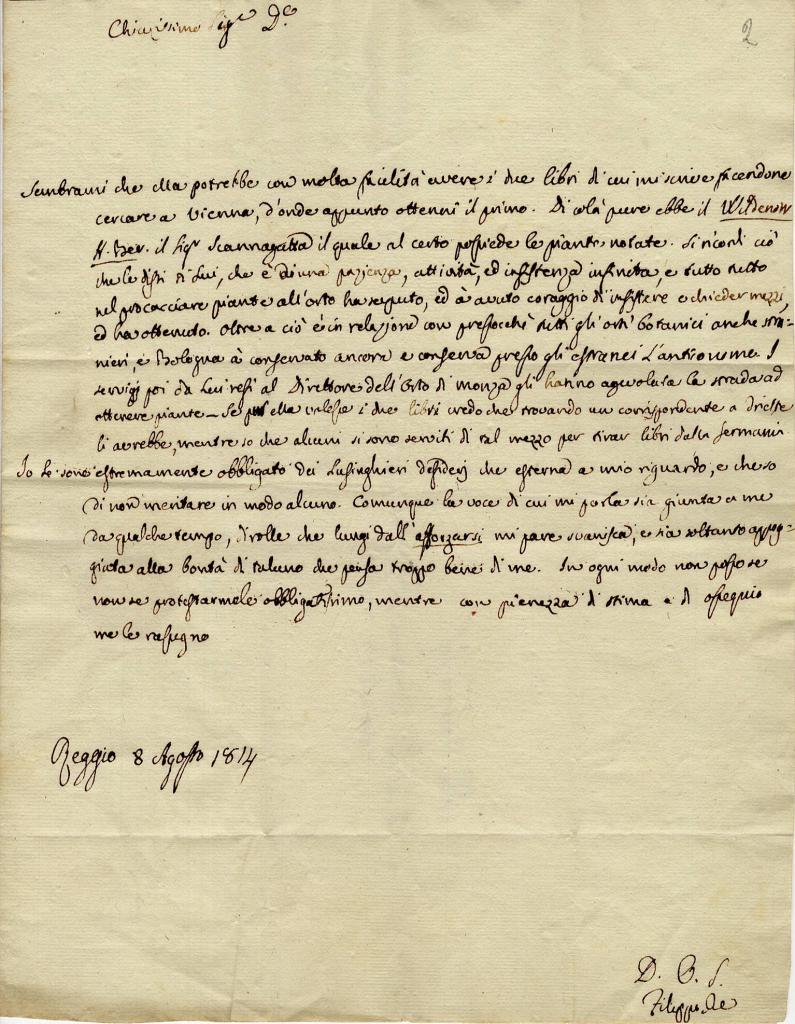 Chiarissimo Sigre Dre
2
Sembrami che ella potrebbe con molta facilità avere i due libri di cui mi scrive facendone
cercare a Vienna, d'onde appunto ottenni il primo. Di colà pure ebbe il Wildenow
H. Ber. il Sigr Scannagatta il quale al certo possiede le piante notate. Si ricordi ciò
che le dissi di Lui, che è di una pazienza, attività, ed insistenza infinita, e tutto
nel procacciare piante all'orto ha saputo, ed à avuto coraggio di insistere e chieder mezzi,
ed ha ottenuto. Oltre a ciò è in relazione con pressocchè tutti gli orti botanici anche stra-
nieri, e Bologna à conservato ancora e conserva presso gli estranei L'antico nome. I
servigj poi da Lui resi al Direttore dell'Orto di Monza gli hanno agevolata la strada ad
ottenere piante – Se ella volesse i due libri credo che trovando un corrispondente a Trieste
li avrebbe, mentre so che alcuni si sono serviti di tal mezzo per tirar libri dalla Germania
Io Le sono estremamente obbligato dei Lusinghieri desiderj che esterna a mio riguardo, e che so
di non meritare in modo alcuno. Comunque la voce di cui mi parla sia giunta a me
da qualche tempo, che lungi dall'afforzarsi mi pare svanisca, e sia soltanto appog-
giata alla bontà di taluno che pensa troppo bene di me. In ogni modo non posso se
non se protestarmele obbligatissimo, mentre con pienezza di stima e di ossequio
me le rassegno
Reggio 8 Agosto 1814
D. V. S.
Filippo Re